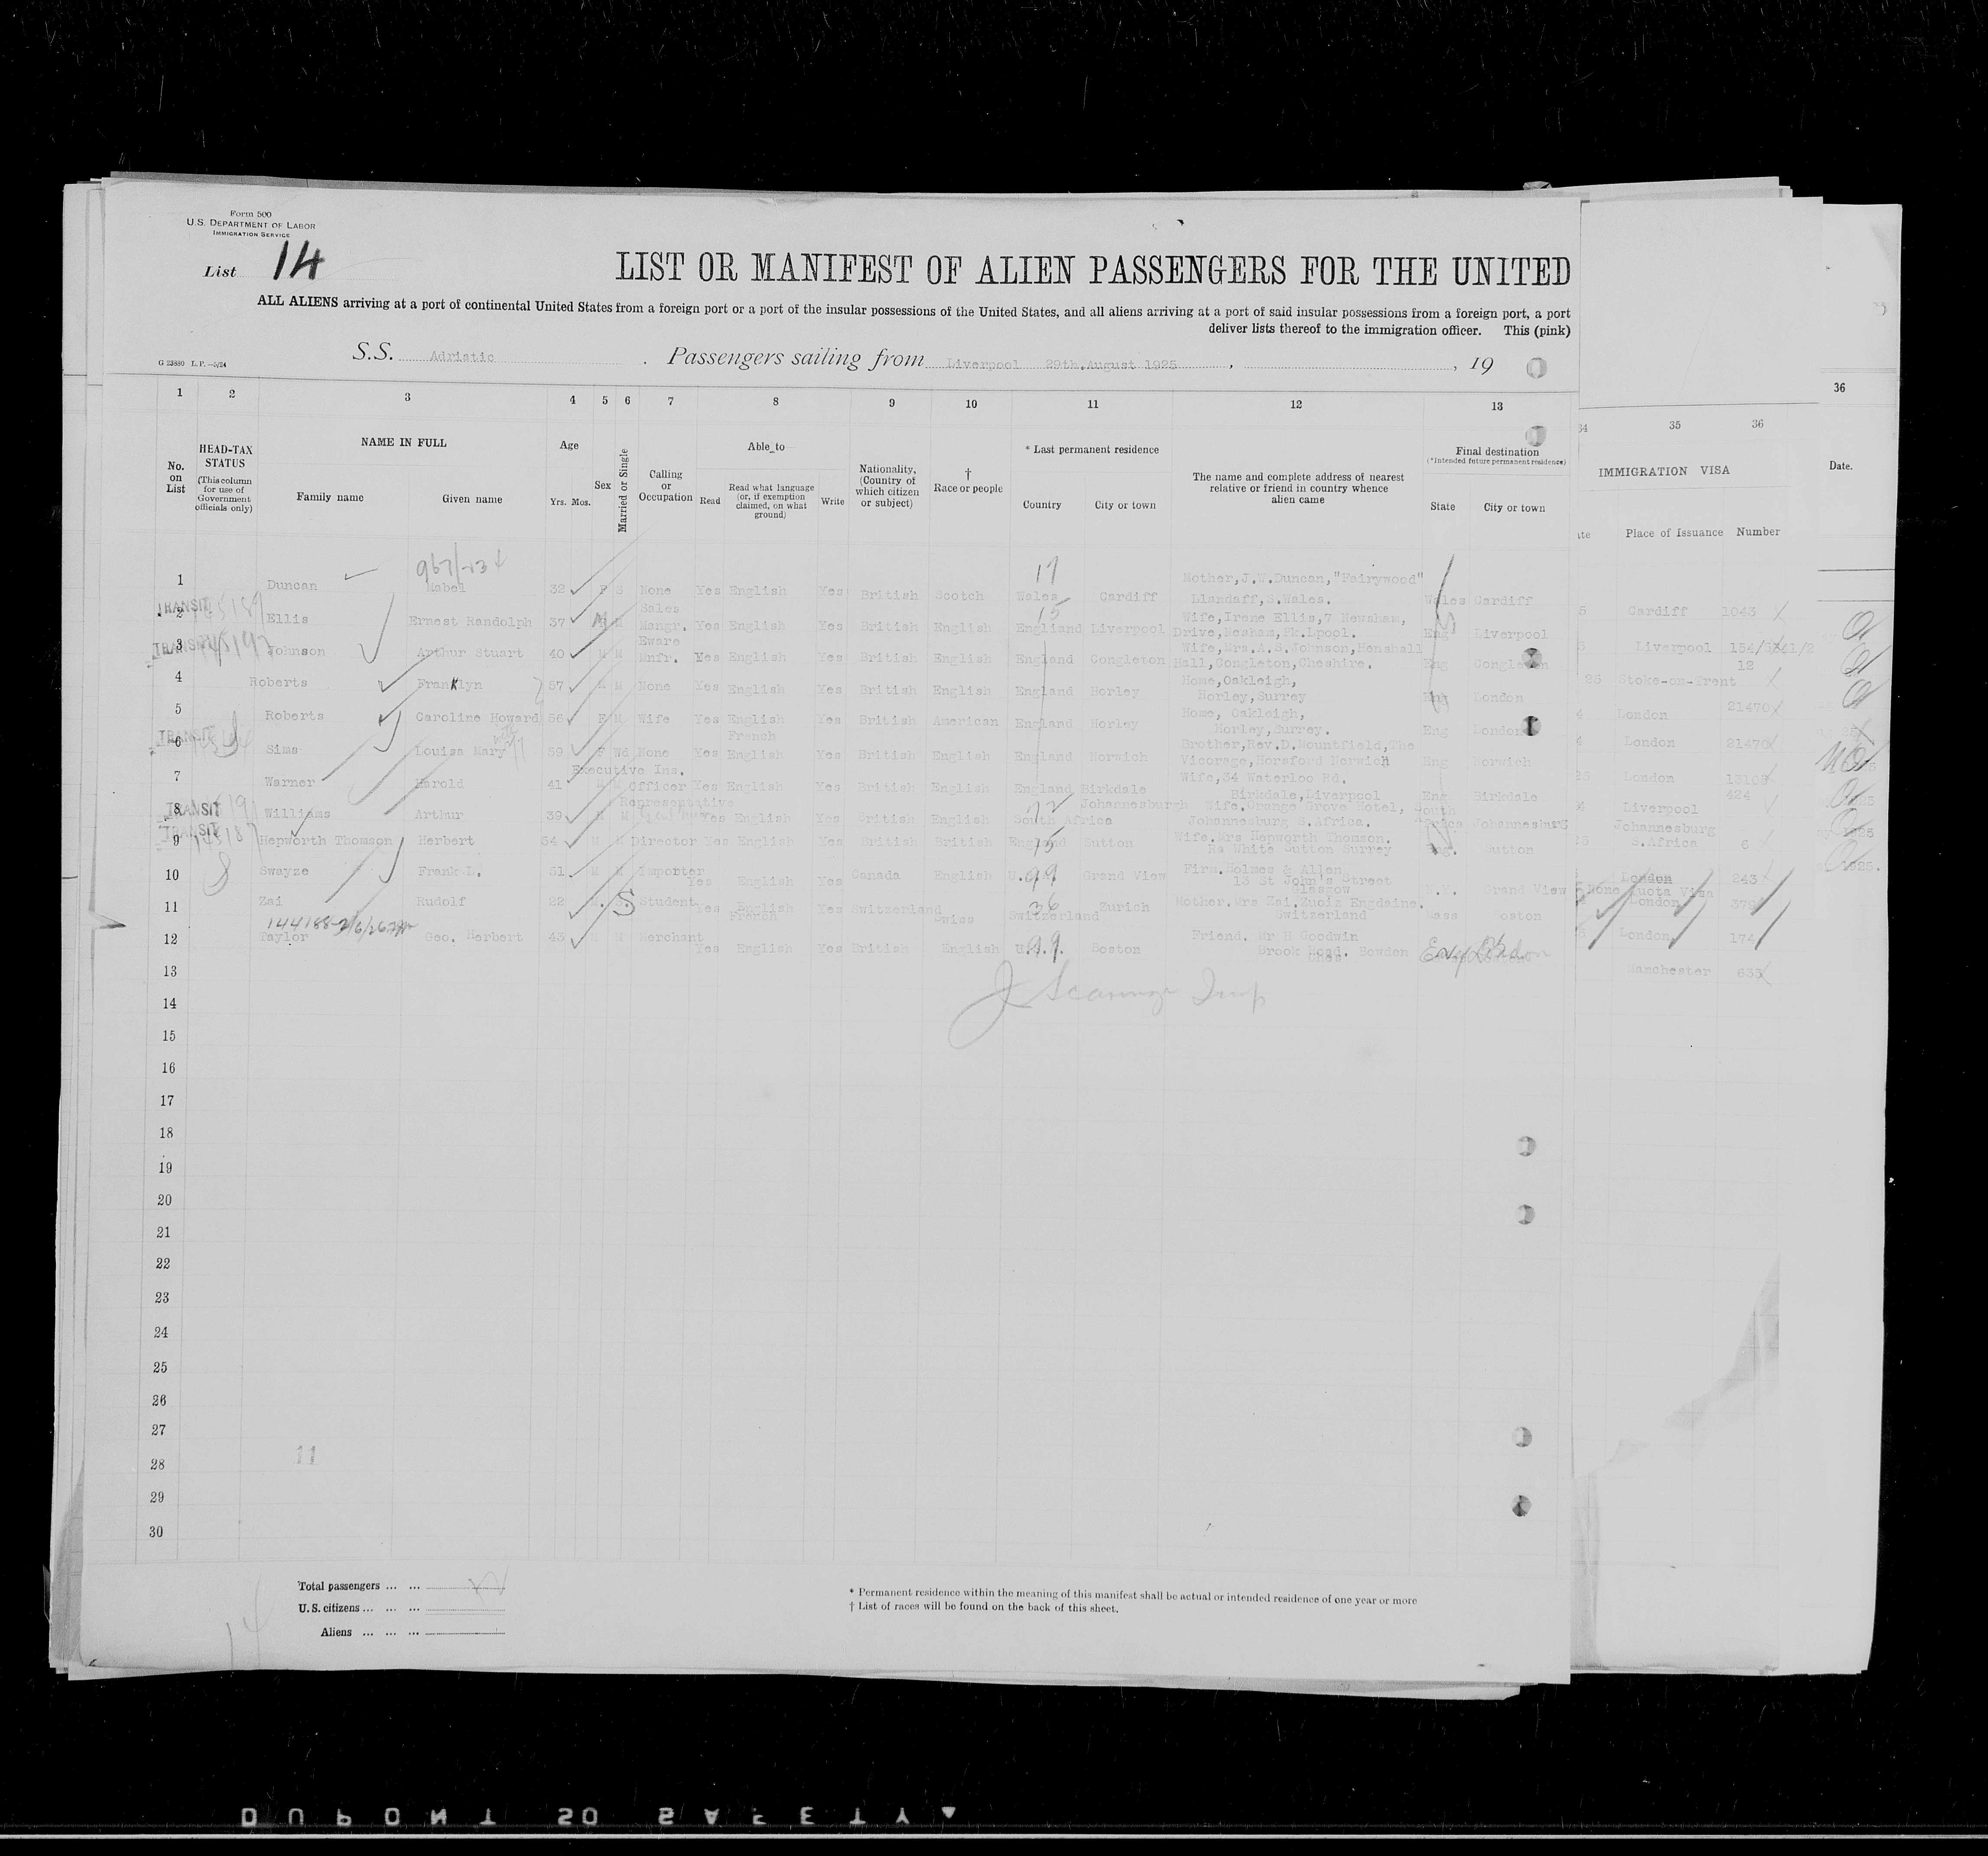 Form 500
U.S. DEPARTMENT OF LABOR
IMMIGRATION SERVICE
List 14
LIST OR MANIFEST OF ALIEN PASSENGERS FOR THE UNITED
ALL ALIENS arriving at a port of continental United States from a foreign port or a port of the insular possessions of the United States, and all aliens arriving at a port of said insular possessions from a foreign port, a port
deliver lists thereof to the immigration officer. This (pink)
S.S. Adriatic. Passengers sailing from Liverpool 29th.August 1925, , 19
G 23880 L.P.—5/24
1 2 3 4 5 6 7 8 9 10 11 12 13 34 35 36 36
No. on List
HEAD-TAX STATUS (This column for use of Government officials only)
NAME IN FULL
Family name Given name
Age
Yrs. Mos.
Sex
Married or Single
Calling or Occupation
Able to
Read
Read what language (or, if exemption claimed, on what ground)
Write
Nationality, (Country of which citizen or subject)
† Race or people
* Last permanent residence
Country City or town
The name and complete address of nearest relative or friend in country whence alien came
Final destination
(*Intended future permanent residence)
State City or town
IMMIGRATION VISA
Place of Issuance Number
Date.
1 Duncan Mabel 32 F S None Yes English Yes British Scotch Wales Cardiff Mother,J.W.Duncan,"Fairywood" Llandaff,S.Wales. Wales Cardiff
TRANSIT 2 Ellis Ernest Randolph 37 M M Sales Mangr. Yes English Yes British English England Liverpool Wife,Irene Ellis,7 Newsham, Drive,Newham,Pk.Lpool. Eng Liverpool Cardiff 1043
TRANSIT 3 Johnson Arthur Stuart 40 M M Eware Mnfr. Yes English Yes British English England Congleton Wife,Mrs.A.S.Johnson,Henshall Hall,Congleton,Cheshire. Eng Congleton Liverpool
4 Roberts Franklyn 57 M M None Yes English Yes British English England Horley Home,Oakleigh, Horley,Surrey Eng London Stoke-on-Trent 12
5 Roberts Caroline Howard 56 F M Wife Yes English Yes British American England Horley Home, Oakleigh, Horley,Surrey. Eng London London 21470
TRANSIT 6 Sims Louisa Mary 59 F Wd None Yes English French Yes British English England Norwich Brother,Rev.D.Mountfield,The Vicorage,Horsford Norwich Eng Norwich London 21470
7 Warner Harold 41 M M Executive Ins. Officer Yes English Yes British English England Birkdale Wife,34 Waterloo Rd. Birkdale,Liverpool Eng Birkdale London
TRANSIT 8 Williams Arthur 39 M M Representative Yes English Yes British English South Africa Johannesburgh Wife.Orange Grove Hotel, Johannesburg S.Africa. South Africa Johannesburg Liverpool 424
TRANSIT 9 Hepworth Thomson Herbert 54 M M Director Yes English Yes British British England Sutton Wife.Mrs Hepworth Thomson. Ra White Sutton Surrey Eng. Sutton Johannesburg S.Africa 6
10 Swayze Frank D. 51 M M Importer Yes English Yes Canada English Grand View Firm.Holmes & Allen 13 St John's Street Glasgow N.Y. Grand View London 243
11 Zai Rudolf 22 M S Student Yes English French Yes Switzerland Swiss Switzerland Zurich Mother.Mrs Zai.Zuoiz Engdaine. Switzerland Mass Boston None Quota Visa London
144188-2/6/26
12 Taylor Geo. Herbert 43 M M Merchant Yes English Yes British English U.S. Boston Friend. Mr H Goodwin Brook Road. Bowden Ches London 174
13 Manchester 633
14
15
16
17
18
19
20
21
22
23
24
25
26
27
28 11
29
30
Total passengers ... ...
U.S. citizens ... ... ...
Aliens ... ... ...
* Permanent residence within the meaning of this manifest shall be actual or intended residence of one year or more
† List of races will be found on the back of this sheet.
14
DUPONT SO SAFETY